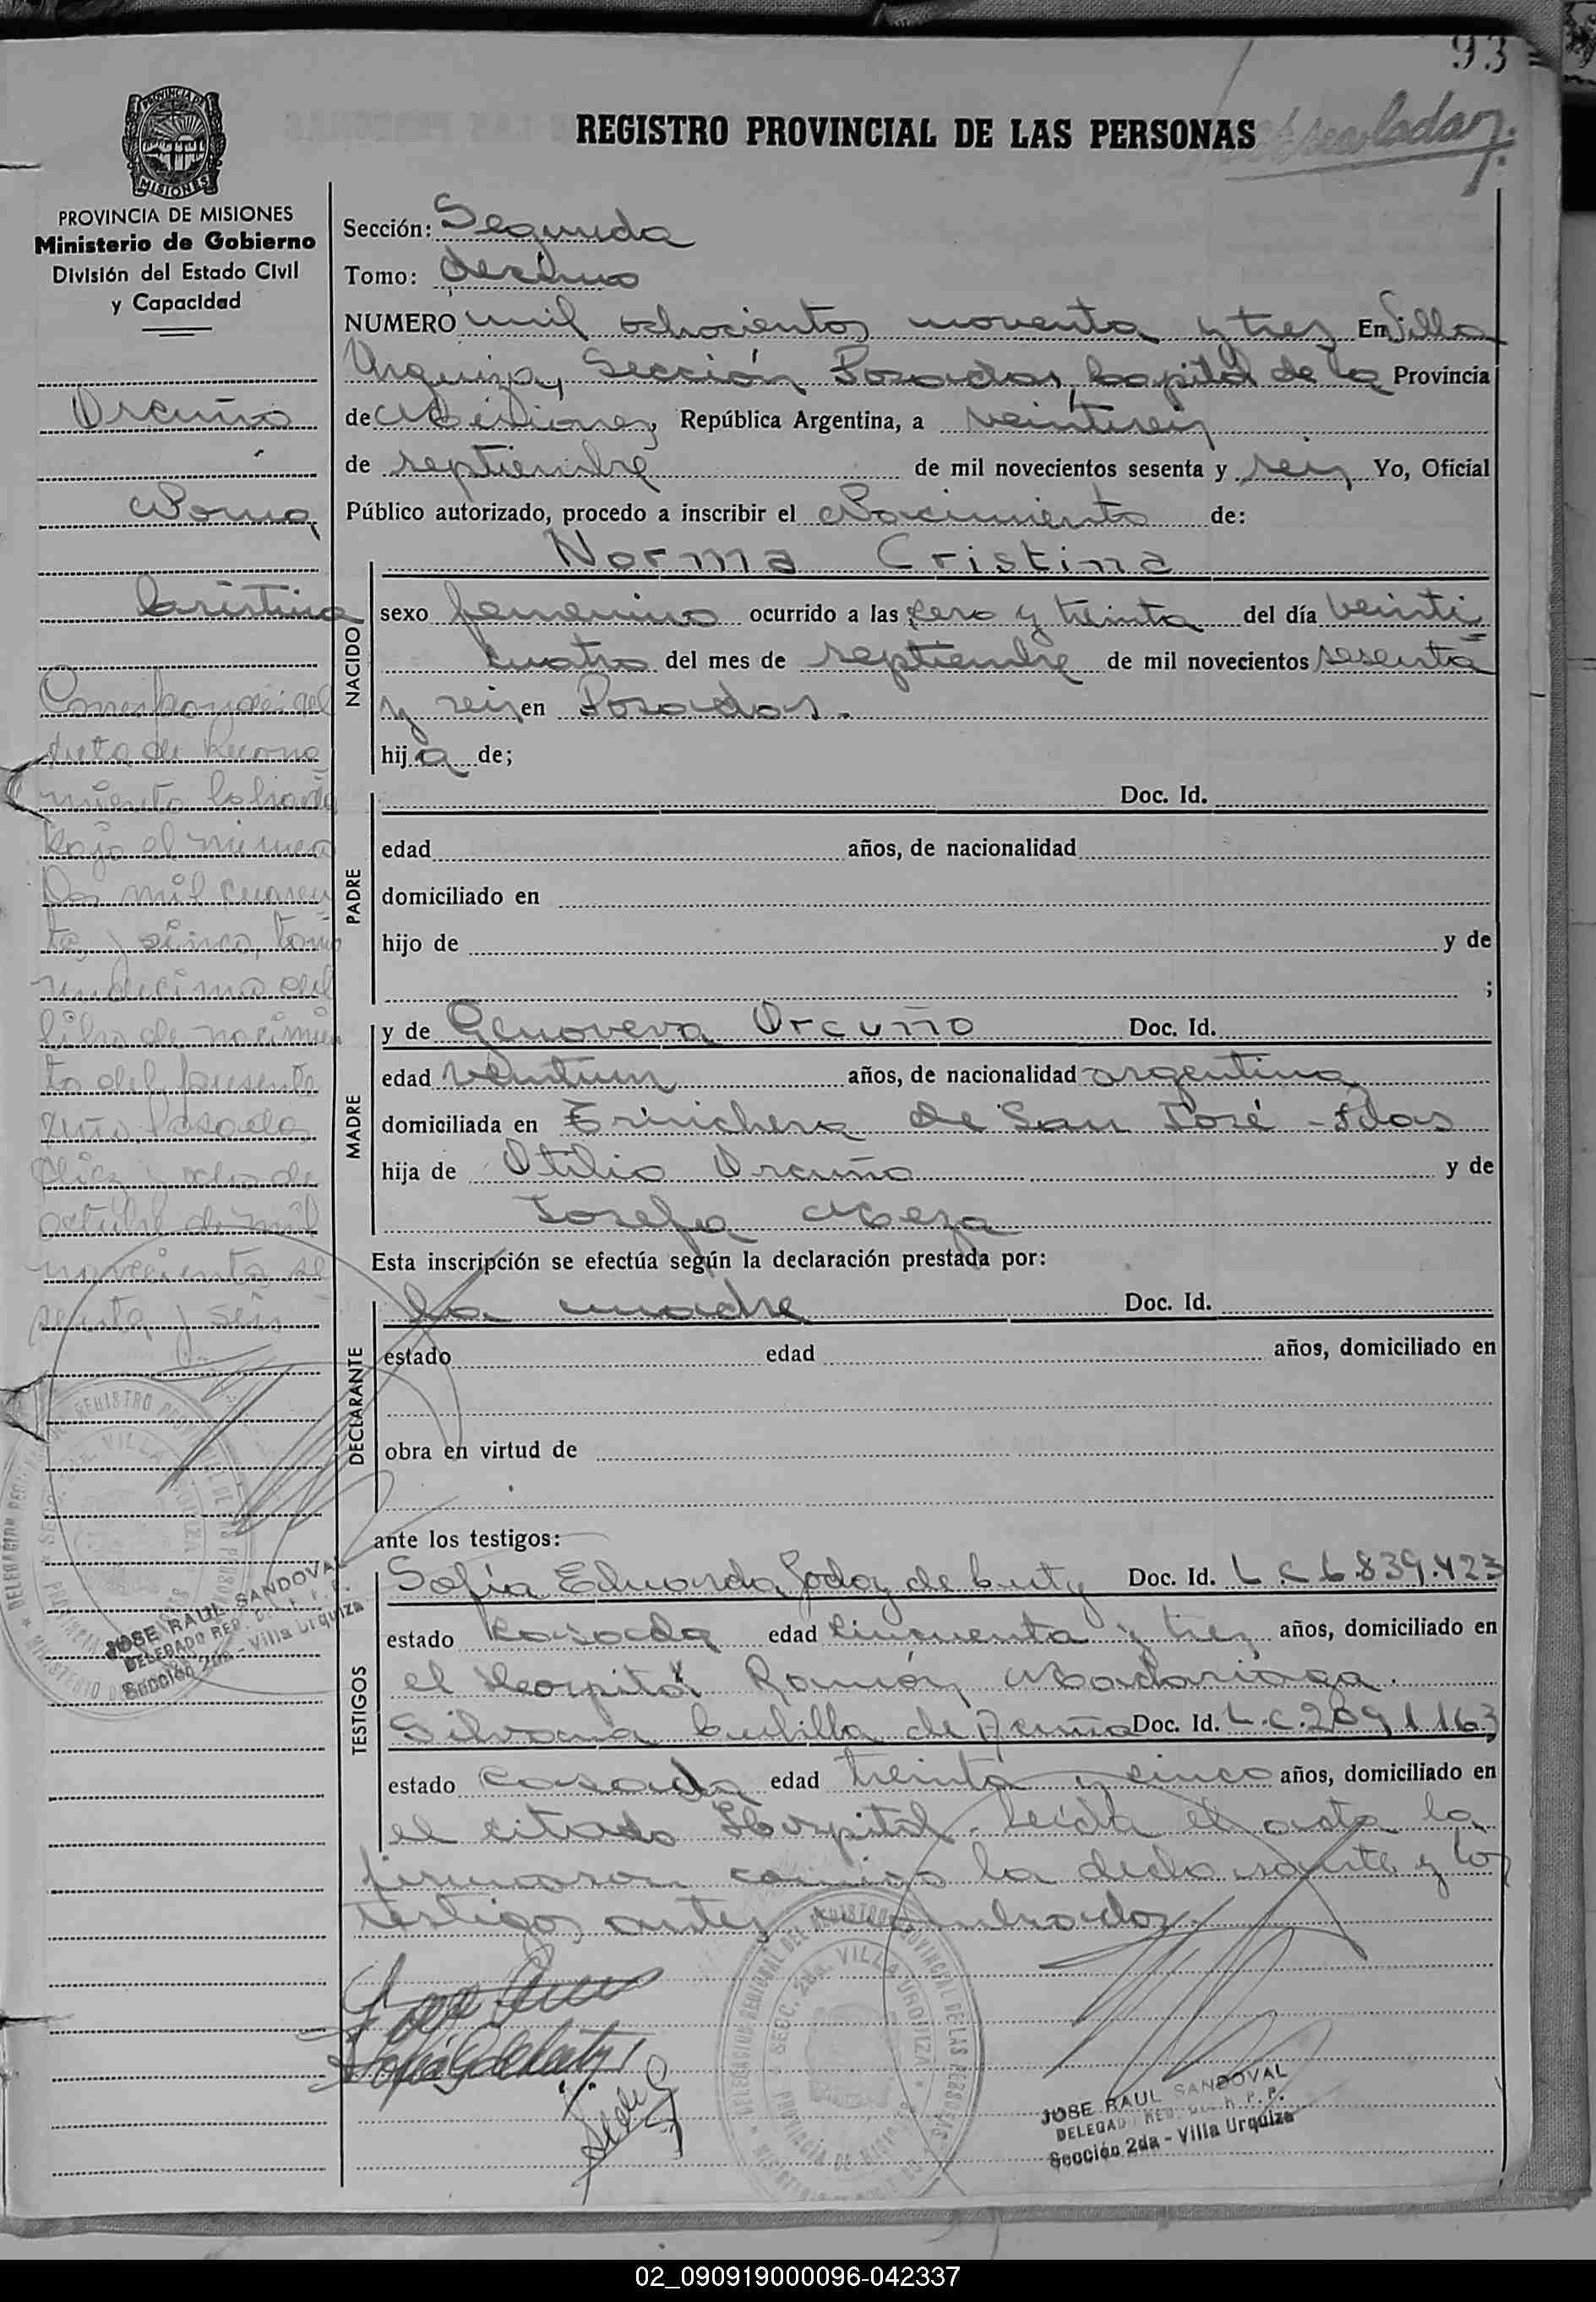 93
REGISTRO PROVINCIAL DE LAS PERSONAS
PROVINCIA DE MISIONES
MISIONES
PROVINCIA DE MISIONES
Ministerio de Gobierno
División del Estado Civil
y Capacidad
Orcuño
Norma
Cristina
Corresponde al
Acta de Recono
miento labrada
bajo el número
Dos mil cuaren
ta y cinco, tomo
undecimo del
libro de nacimien
to del presente
año, Posadas,
diez y ocho de
octubre de mil
novecientos se
senta y seis
JOSE RAUL SANDOVAL
DELEGADO REG. DEL R. P. P.
Sección 2da - Villa Urquiza
Sección: Segunda
Tomo: décimo
NUMERO mil ochocientos noventa y tres En Villa
Urquiza, Sección Posadas, Capital de la Provincia
de Misiones, República Argentina, a veintiseis
de septiembre de mil novecientos sesenta y seis Yo, Oficial
Público autorizado, procedo a inscribir el Nacimiento de:
Norma Cristina
NACIDO
sexo femenino ocurrido a las cero y treinta del día veinti
cuatro del mes de septiembre de mil novecientos sesenta
y seis en Posadas.
hija de;
PADRE
Doc. Id.
edad años, de nacionalidad
domiciliado en
hijo de y de
;
MADRE
y de Genoveva Orcuño Doc. Id.
edad ventiun años, de nacionalidad argentina
domiciliada en Trinchera de San José - Pdas
hija de Otilio Orcuño y de
Josefa Meza
Esta inscripción se efectúa según la declaración prestada por:
DECLARANTE
la madre Doc. Id.
estado edad años, domiciliado en
obra en virtud de
ante los testigos:
TESTIGOS
Sofía Eduarda Godoy de Doc. Id. L.C 6.839.423
estado casada edad cincuenta y tres años, domiciliado en
el Hospital Ramón Madariaga.
Silvana de Acuña Doc. Id. L.C. 2091163
estado casada edad treinta y cinco años, domiciliado en
el citado Hospital. Leída el acta la
firmaron conmigo la declarante y los
testigos antes nombrados
DELEGACION REGIONAL DEL REGISTRO PROVINCIAL DE LAS PERSONAS
SECC. 2da. VILLA URQUIZA
JOSE RAUL SANDOVAL
DELEGADO REG. DEL R. P. P.
Sección 2da - Villa Urquiza
02_090919000096-042337